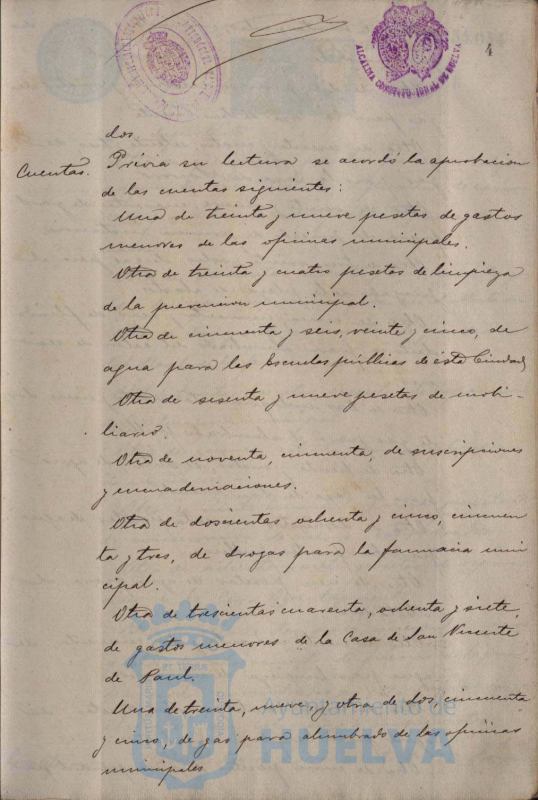 ALCALDIA CONSTITUCIONAL DE HUELVA
4
dos.
Cuentas. Prévia su lectura se acordó la aprobacion
de las cuentas siguientes:
Una de treinta y nueve pesetas de gastos
menores de las oficinas municipales.
Otra de treinta y cuatro pesetas de limpieza
de la prevencion municipal.
Otra de cincuenta y seis, veinte y cinco, de
agua para las Escuelas públicas de ésta Ciudad
Otra de sesenta y nueve pesetas de mobi-
liario.
Otra de noventa, cincuenta, de suscripciones
y encuadernaciones.
Otra de doscientas ochenta y cinco, cincuen
ta y tres, de drogas para la farmacia muni
cipal.
Otra de trescientas cuarenta, ochenta y siete,
de gastos menores de la Casa de San Vicente
de Paul.
Una de treinta, nueve, y otra de dos cincuenta
y cinco, de gas para alumbrado de las oficinas
municipales
Ayuntamiento de
HUELVA